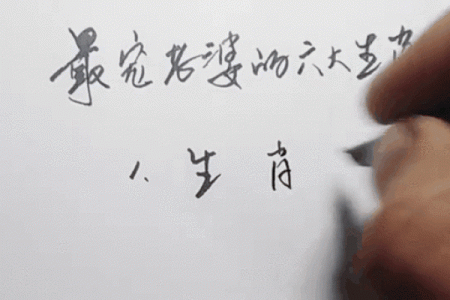 最宠老婆的六大生肖
1、生肖